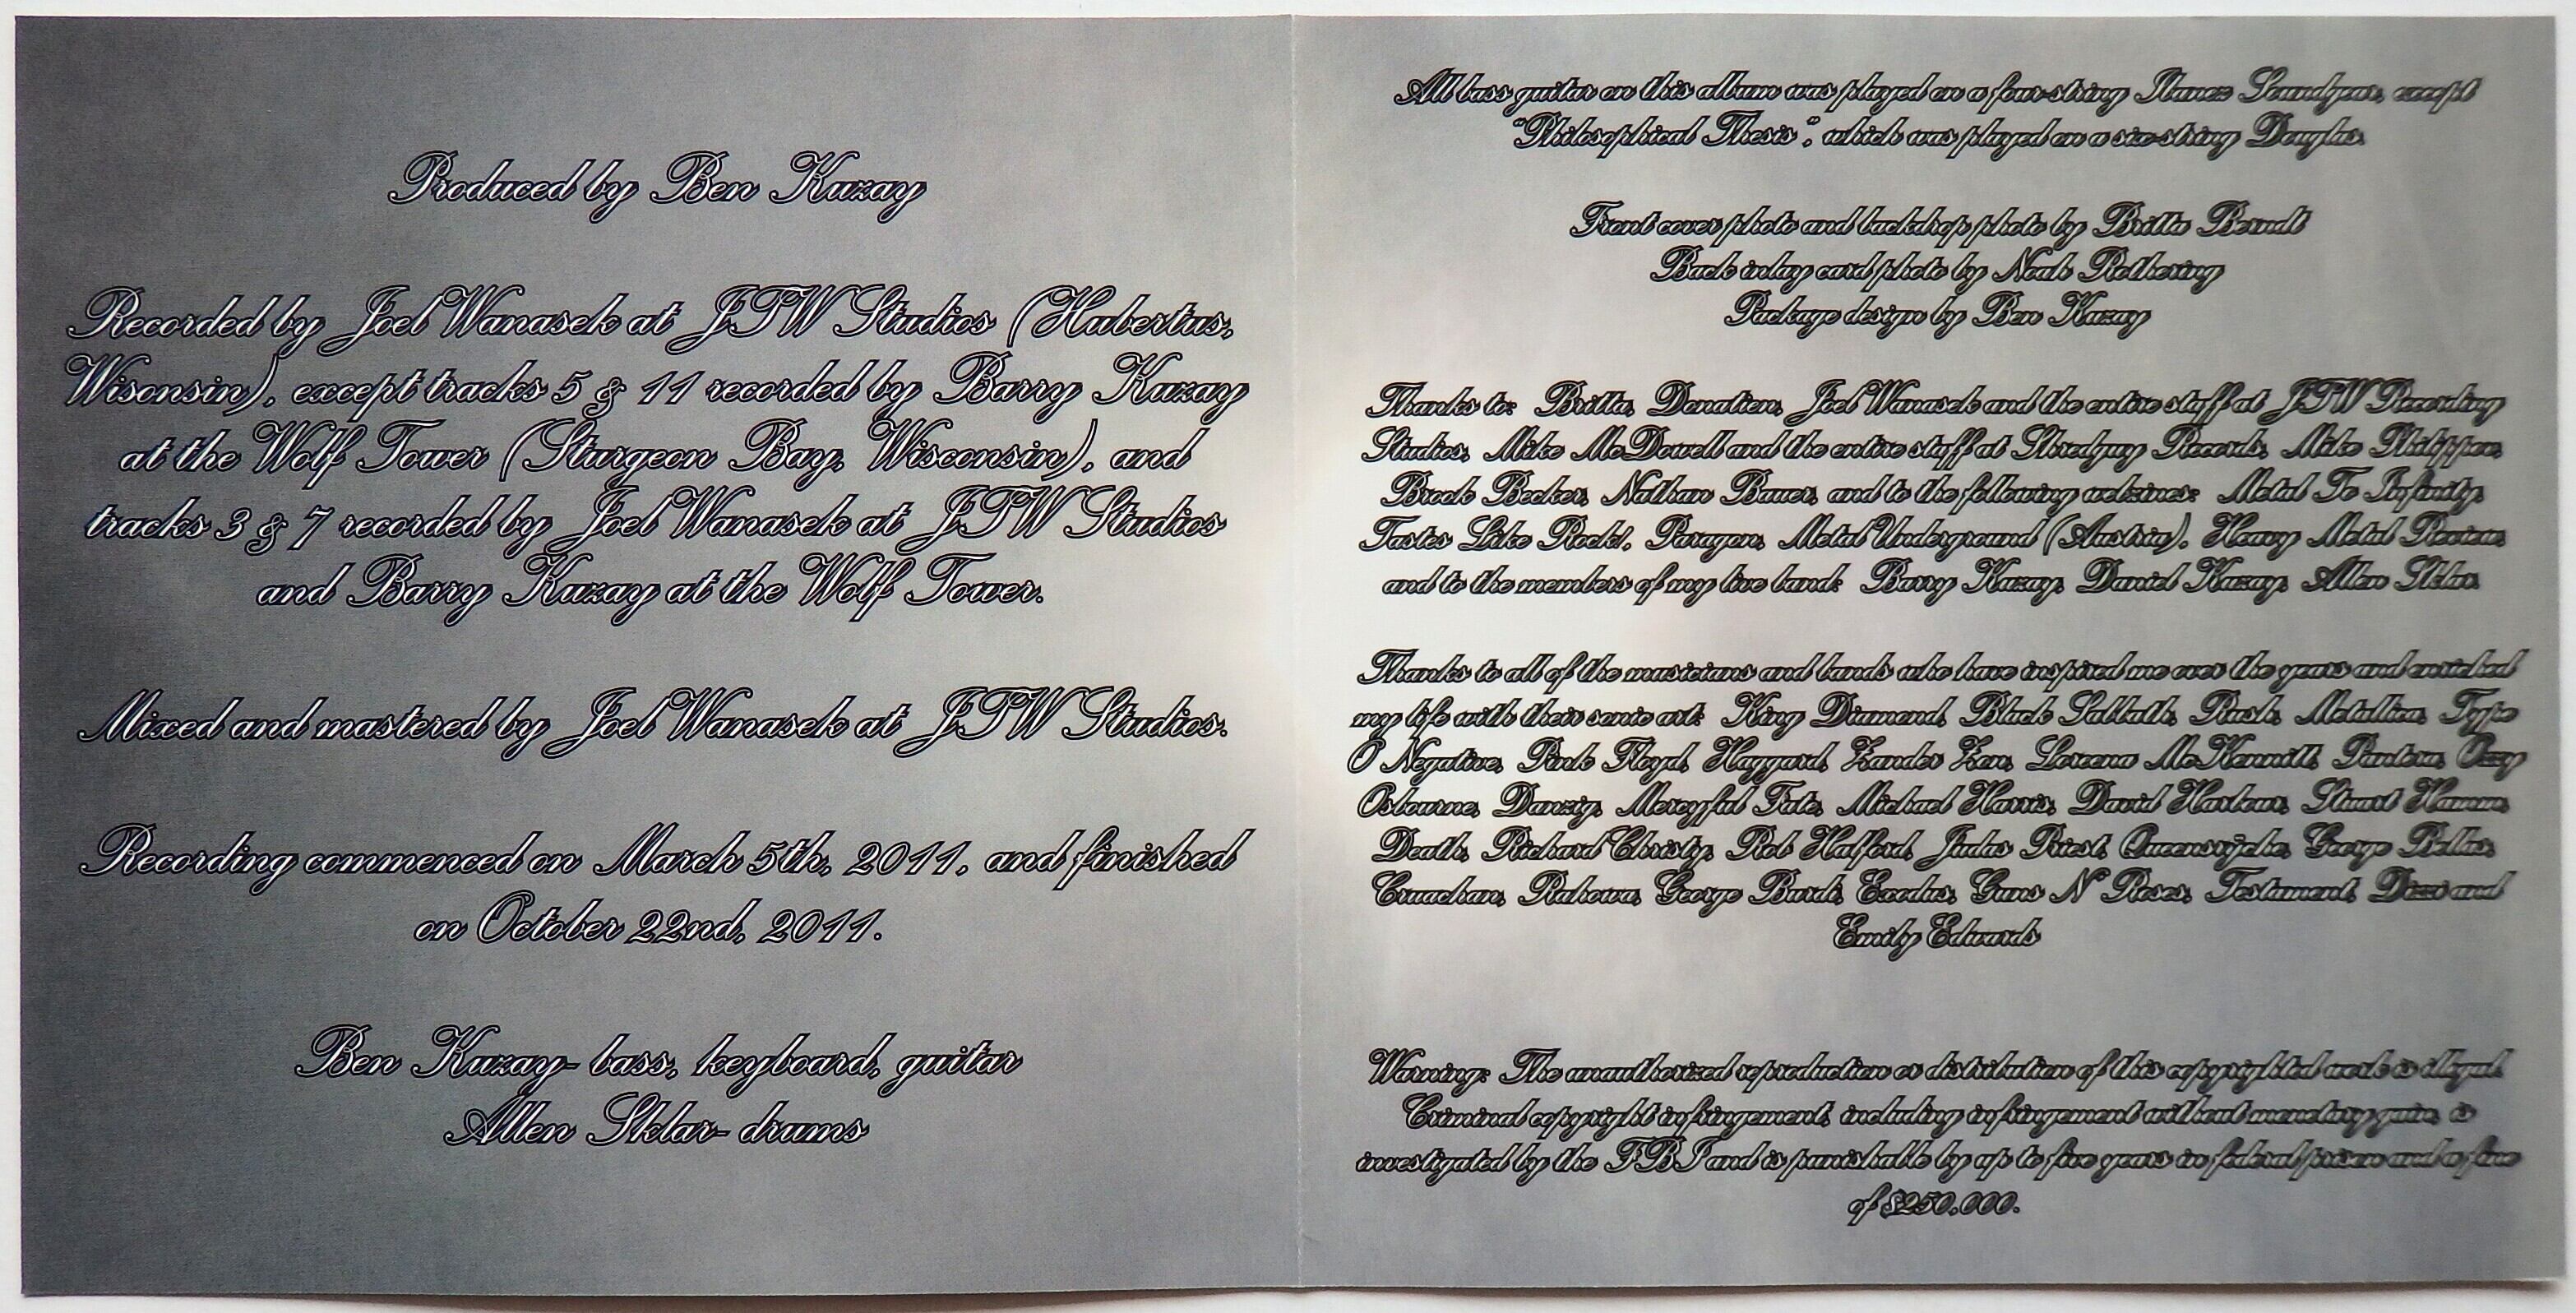 Produced by Ben Kuzay
Recorded by Joel Wanasek at JTW Studios (Hubertus,
Wisonsin), except tracks 5 & 11 recorded by Barry Kuzay
at the Wolf Tower (Sturgeon Bay, Wisconsin), and
tracks 3 & 7 recorded by Joel Wanasek at JTW Studios
and Barry Kuzay at the Wolf Tower.
Mixed and mastered by Joel Wanasek at JTW Studios.
Recording commenced on March 5th, 2011, and finished
on October 22nd, 2011.
Ben Kuzay- bass, keyboard, guitar
Allen Sklar- drums
All bass guitar on this album was played on a four-string Ibanez Soundgear, except
"Philosophical Thesis", which was played on a six-string Douglas.
Front cover photo and backdrop photo by Britta Berndt
Back inlay card photo by Noah Rothering
Package design by Ben Kuzay
Thanks to: Britta, Donatien, Joel Wanasek and the entire staff at JTW Recording
Studios, Mike McDowell and the entire staff at Shredguy Records, Mike Philippon,
Brock Becker, Nathan Bauer, and to the following webzines: Metal To Infinity,
Tastes Like Rock!, Paragon, Metal Underground (Austria), Heavy Metal Review,
and to the members of my live band: Barry Kuzay, Daniel Kuzay, Allen Sklar.
Thanks to all of the musicians and bands who have inspired me over the years and enriched
my life with their sonic art: King Diamond, Black Sabbath, Rush, Metallica, Type
O Negative, Pink Floyd, Haggard, Zander Zon, Loreena McKennitt, Pantera, Ozzy
Osbourne, Danzig, Mercyful Fate, Michael Harris, David Harbour, Stuart Hamm,
Death, Richard Christy, Rob Halford, Judas Priest, Queensrÿche, George Bellas,
Cruachan, Rahowa, George Burdi, Exodus, Guns N' Roses, Testament, Dizzi and
Emily Edwards
Warning: The unauthorized reproduction or distribution of this copyrighted work is illegal.
Criminal copyright infringement, including infringement without monetary gain, is
investigated by the FBI and is punishable by up to five years in federal prison and a fine
of $250,000.